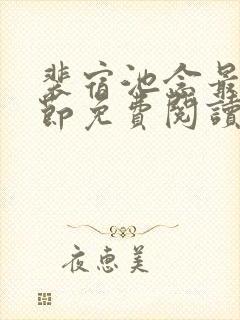 裴宿池念最
節免費閱讀
夜惠美